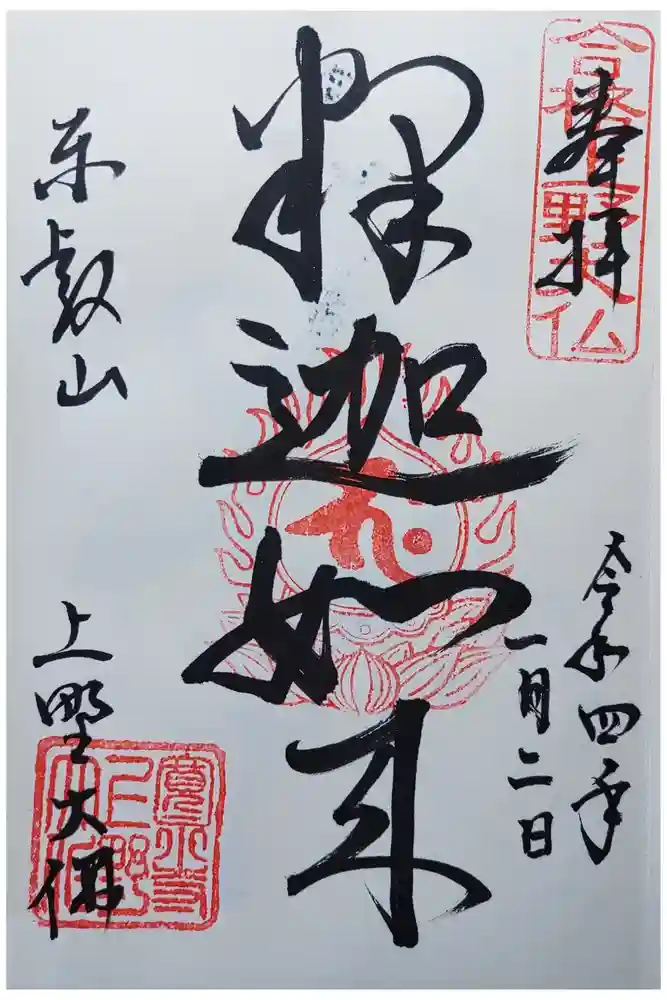 奉拝
合格上野大仏
令和四年
一月二日
釈迦如来
東叡山
上野大佛